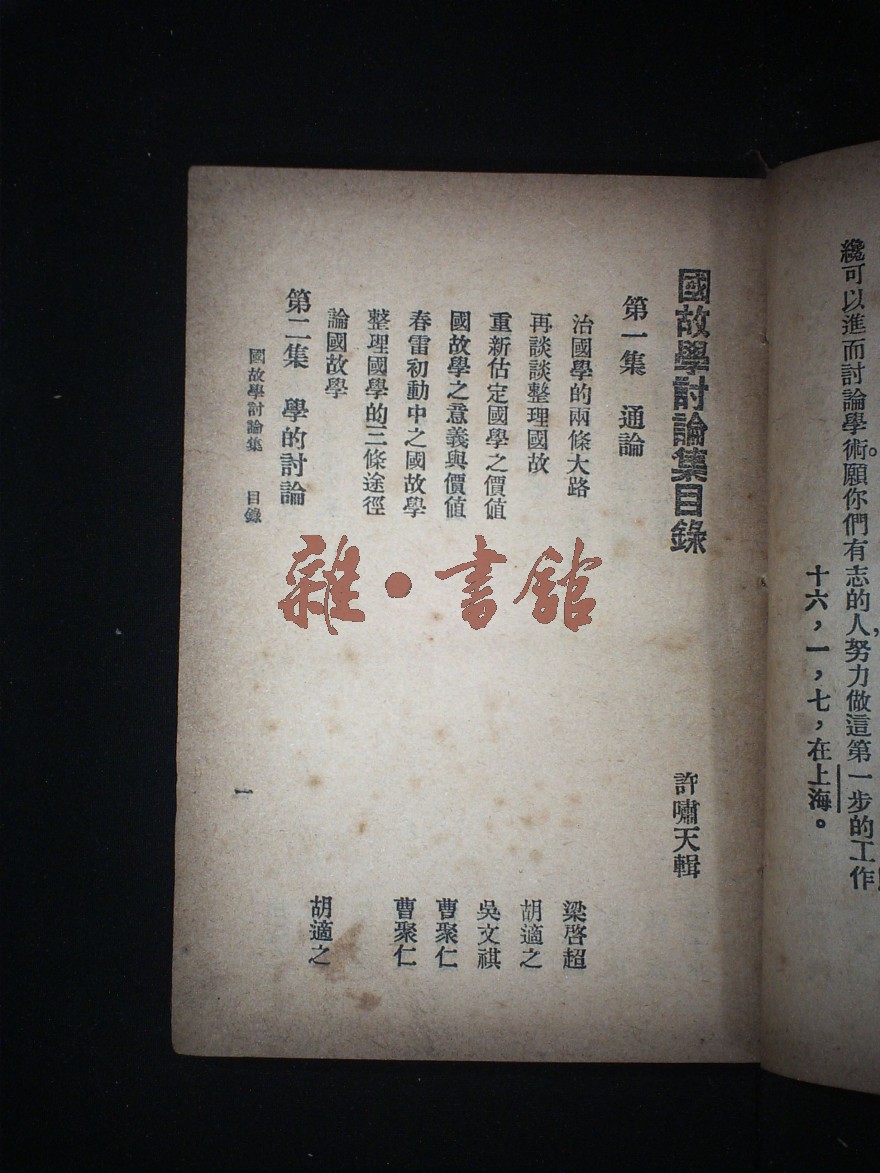 纔可以進而討論學術。願你們有志的人,努力做這第一步的工作
十六,一,七,在上海。
國故學討論集目錄
許嘯天輯
第一集 通論
治國學的兩條大路 梁啓超
再談談整理國故 胡適之
重新估定國學之價値 吳文祺
國故學之意義與價値 曹聚仁
春雷初動中之國故學 曹聚仁
整理國學的三條途徑
論國故學 胡適之
第二集 學的討論
國故學討論集 目錄
一
雜·書館